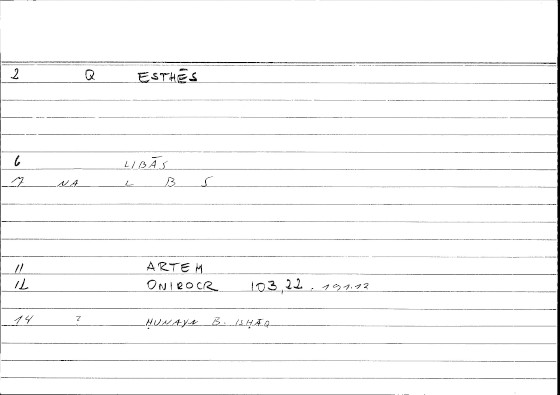 2 Q ESTHĒS
6 LIBĀS
7 NA L B S
11 ARTEM
12 ONIROCR 103,22. 191.12
14 ? ḤUNAYN B. ISḤĀQ